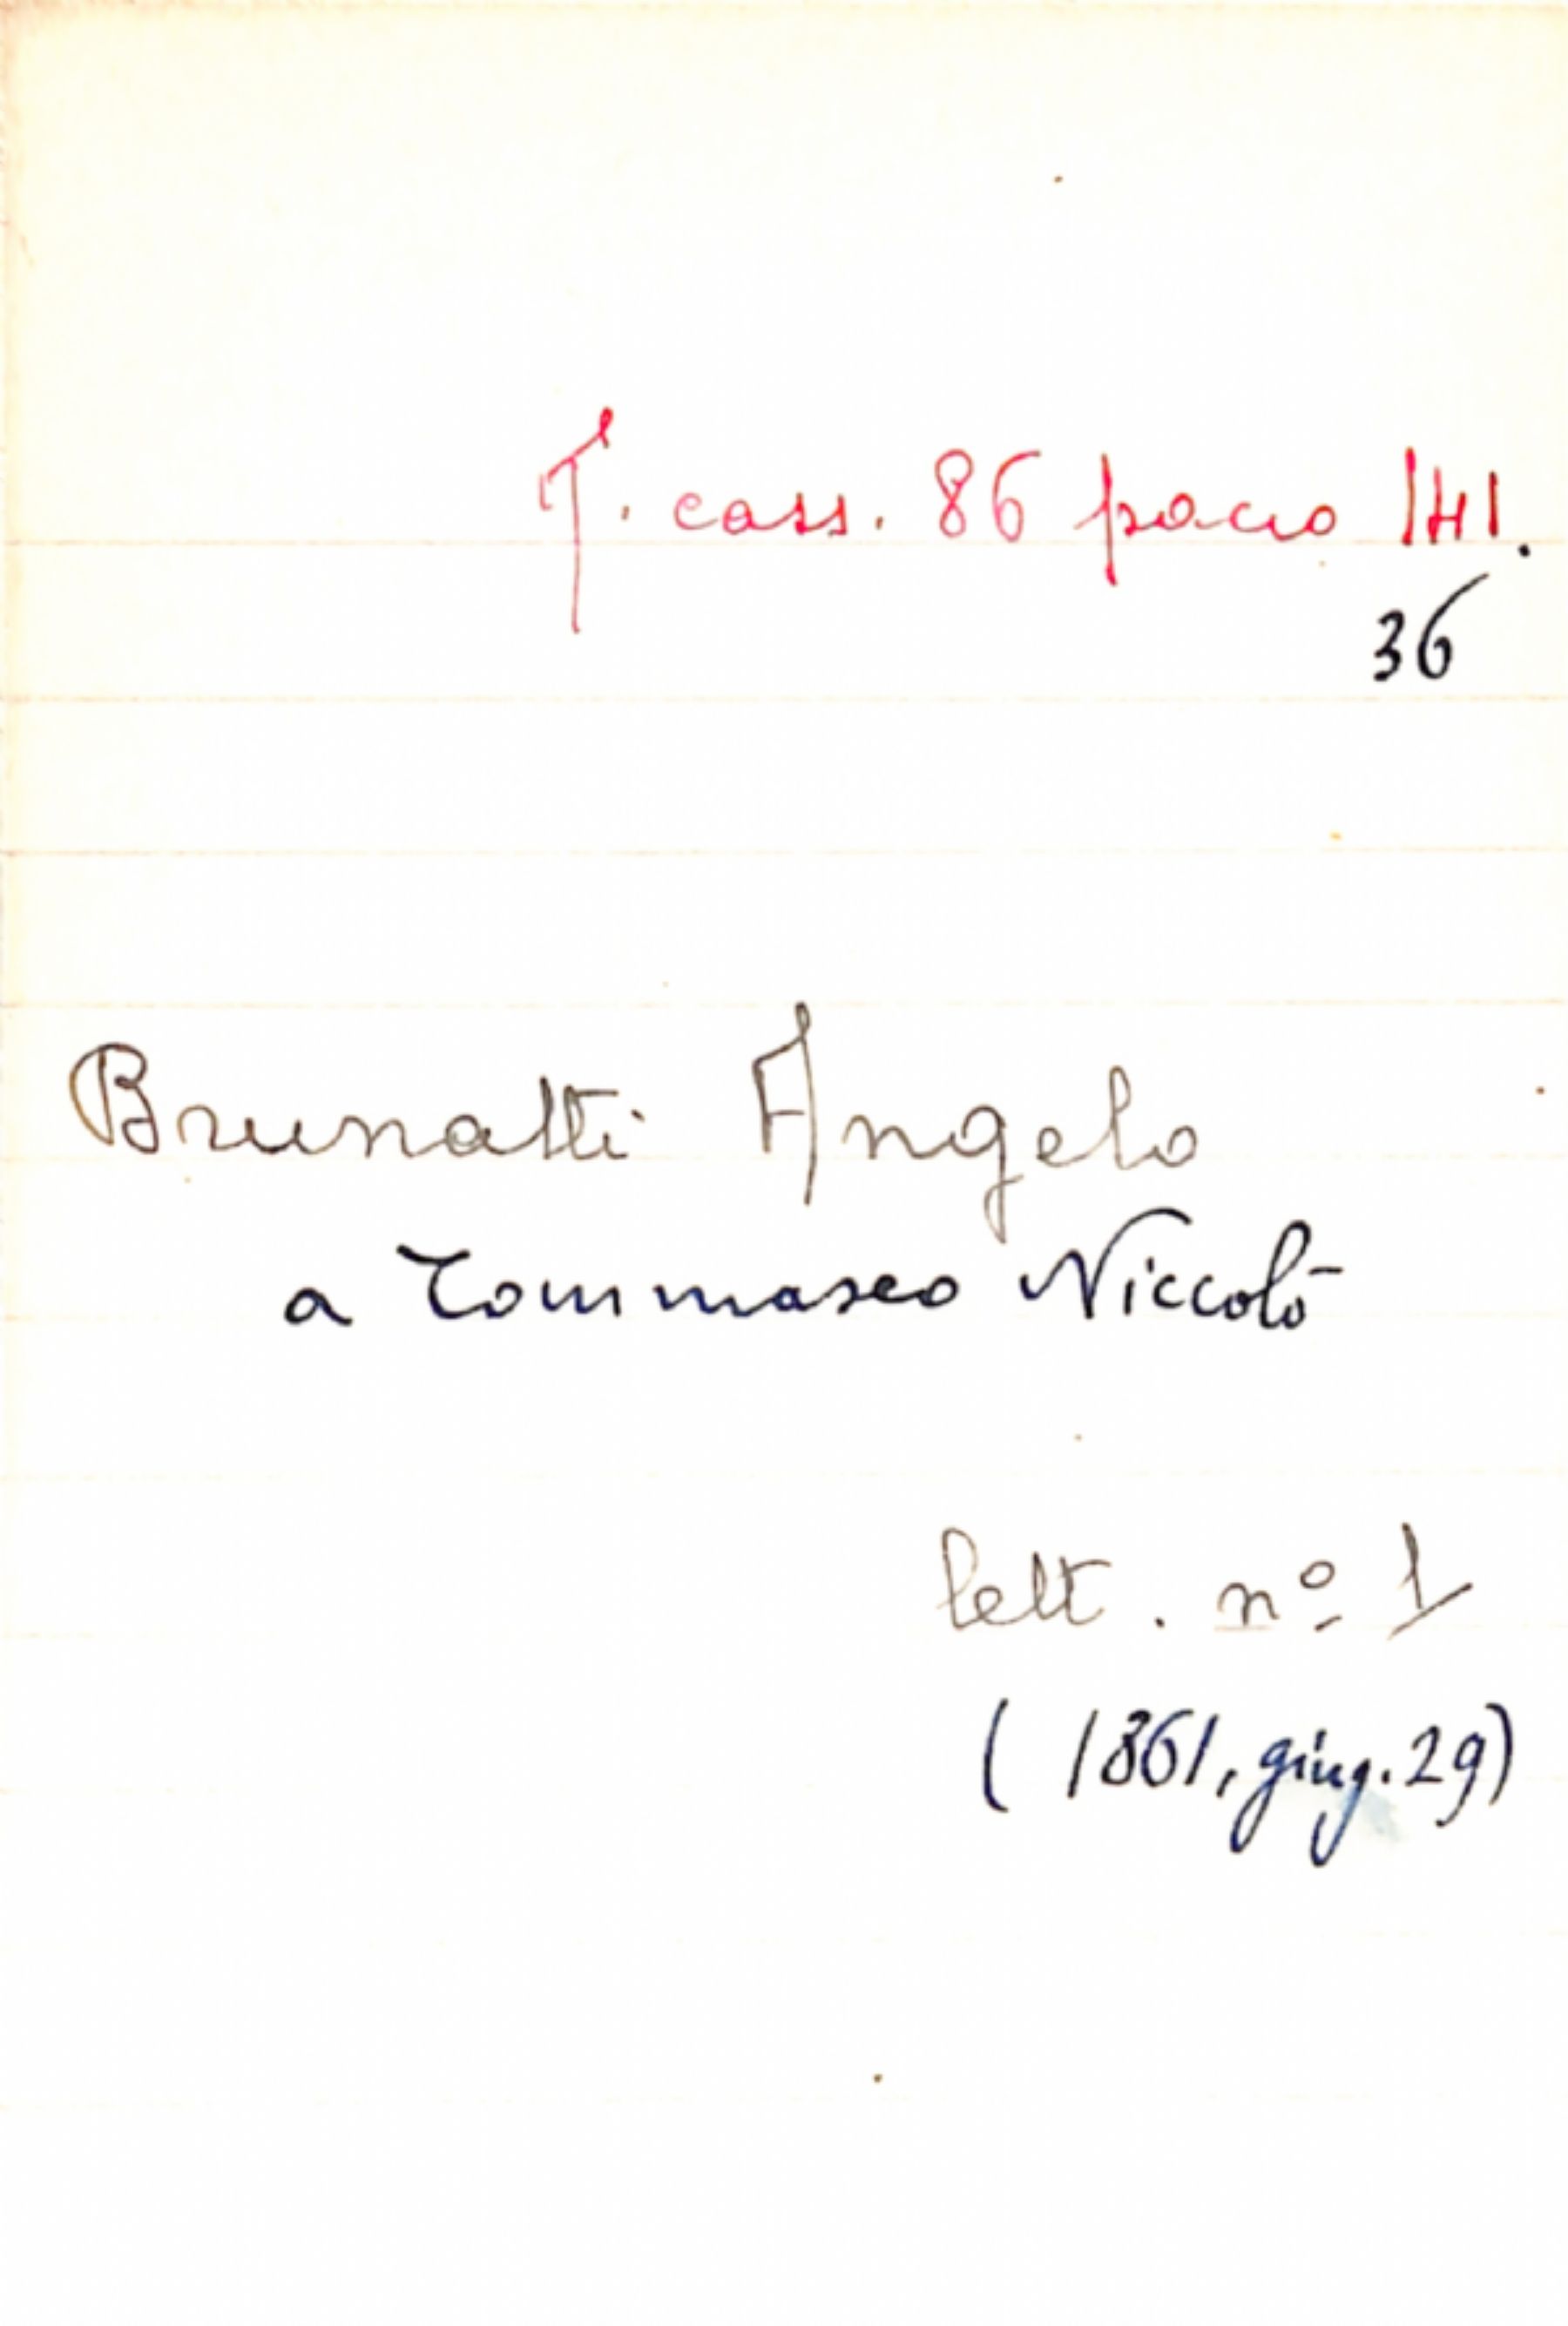 T. cass. 86 pacco 141.
36
Brunatti Angelo
a Tommaseo Niccolò
lett. nº 1
(1861, giug. 29)